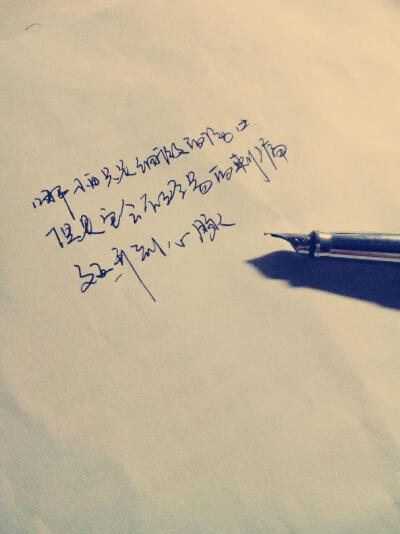 哪怕只是细微的伤口
但是它会不经意的刺痛
蔓延到心脏